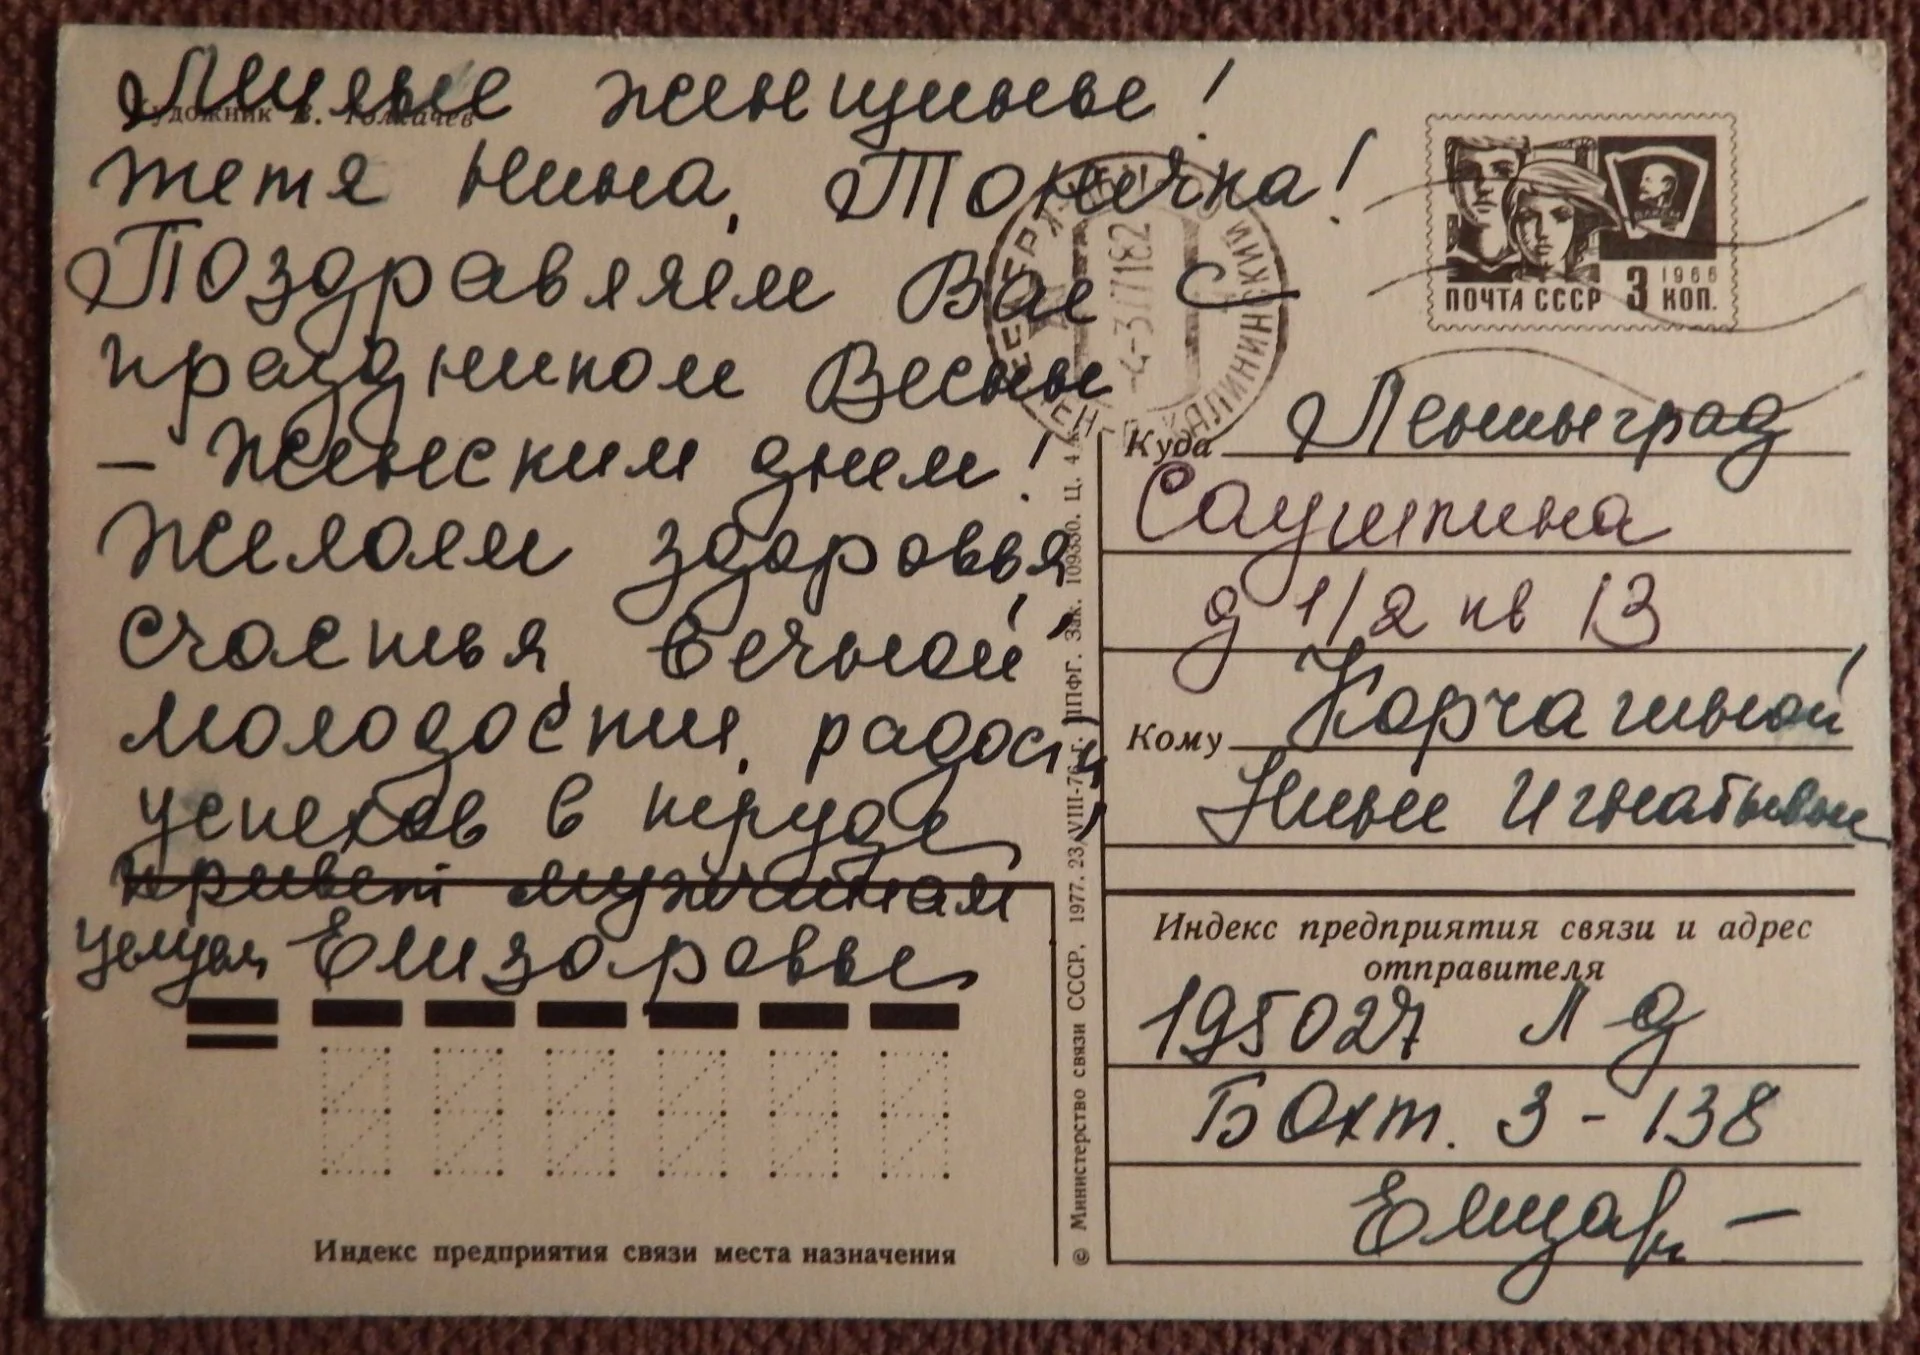 Милые женщины!
Художник В. Толкачев
тетя Нина, Тонечка!
Поздравляем Вас с
праздником Весны
- Женским днем!
Желаем здоровья,
счастья, вечной
молодости, радости,
успехов в труде
привет мужчинам
целуем Елизаровы
Индекс предприятия связи места назначения
© Министерство связи СССР. 1977. 23/VIII-76 г. ППФГ. Зак. 109330. Ц. 4 к.
4-3 77 182
ПОЧТА СССР 3 КОП.
1966
Куда Ленинград
Саушкина
д 1/2 кв 13
Кому Корчагиной
Нине Игнатьевне
Индекс предприятия связи и адрес
отправителя
195027 Л д
Б Охт. 3-138
Елизар -